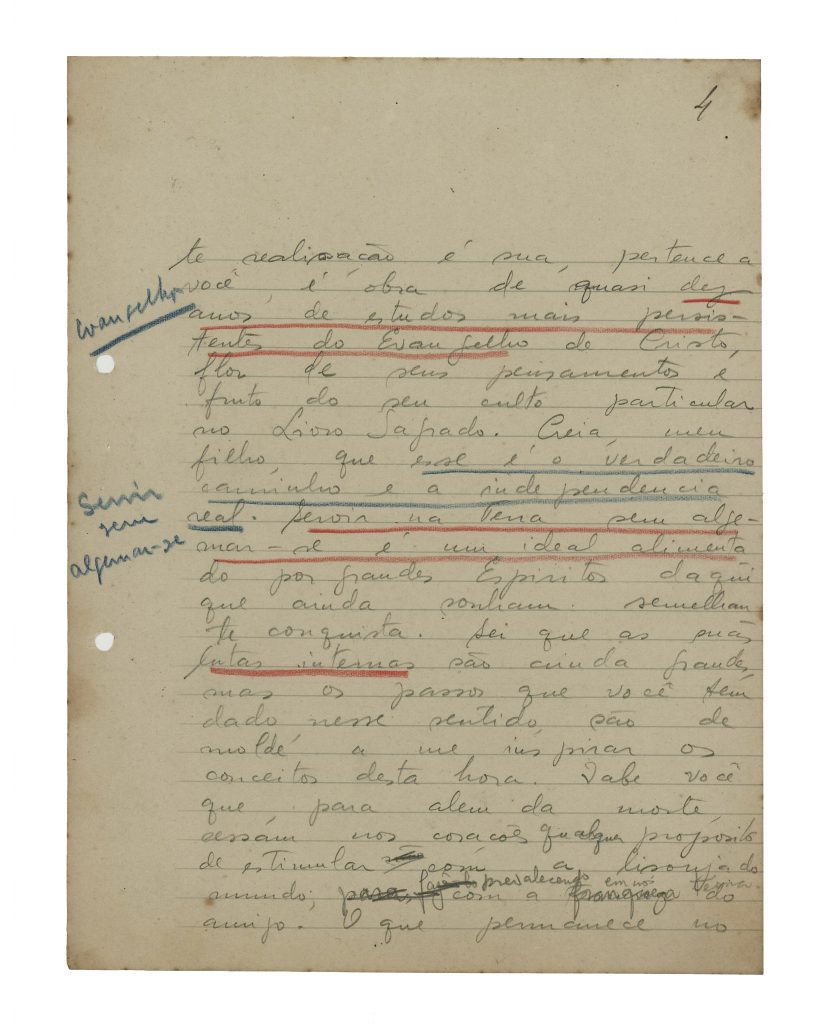 4
te realização é sua, pertence a
você, é obra de quasi dez
Evangelho
anos de estudos mais persis-
tentes do Evangelho de Cristo,
flor de seus pensamentos e
fruto do seu culto particular
no Livro Sagrado. Creia, meu
filho, que esse é o verdadeiro
caminho e a independencia
Servir
sem
algemar-se
real. Servir na Terra sem alge-
mar-se é um ideal alimenta
do por grandes Espiritos daqui
que ainda sonham semelhan
te conquista. Sei que as suas
lutas internas são ainda grandes
mas os passos que você tem
dado nesse sentido são de
molde a me inspirar os
conceitos desta hora. Sabe você
que para alem da morte,
cessam nos corações qualquer proposito
de estimular com a lisonja do
prevalecendo em nós
mundo, para com a franqueza do
amigo. O que permanece no